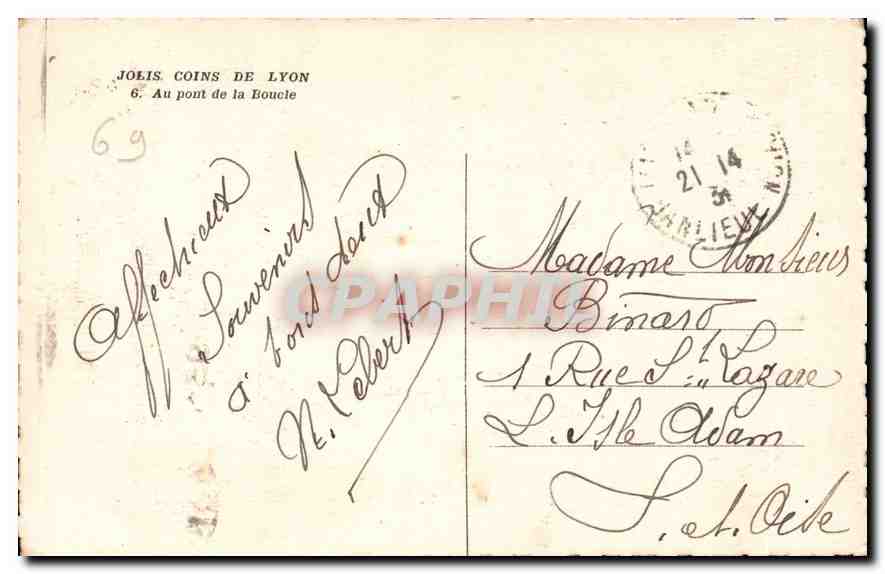 JOLIS COINS DE LYON
6. Au pont de la Boucle
69
Affectueux
Souvenirs
à tous deux
N. Lebert
14
21 14
31
Madame Monsieur
Binard
1 Rue St Lazare
L. Isle Adam
S. et. Oise
CPAPHIL